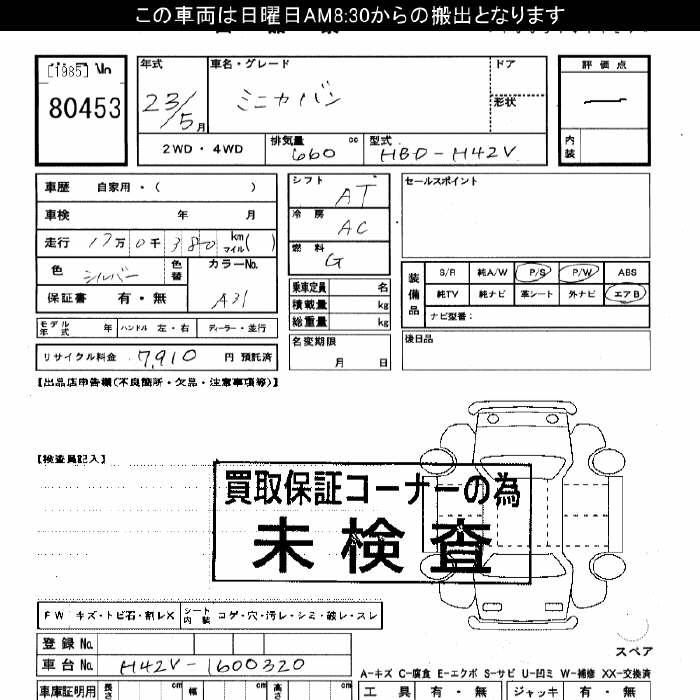 この車両は日曜日AM8:30からの搬出となります
[1985] No
80453
年式 車名・グレード ドア 評価点
23/5月 ミニカバン 形状 —
2WD・4WD 排気量 660 cc 型式 HBD-H42V 内装
車歴 自家用・( ) シフト AT セールスポイント
車検 年 月 冷房 AC
走行 17万0千380 km マイル( ) 燃料 G
色 シルバー 色替 カラーNo. A31 乗車定員 名 装備品 S/R 純A/W P/S P/W ABS
保証書 有・無 積載量 kg 純TV 純ナビ 革シート 外ナビ エアB
総重量 kg ナビ型番:
モデル年式 年 ハンドル 左・右 ディーラー・並行 名変期限 月 日 後日品
リサイクル料金 7,910 円 預託済
【出品店申告欄(不良箇所・欠品・注意事項等)】
【検査員記入】
買取保証コーナーの為
未検査
FW キズ・トビ石・割レX シート内装 コゲ・穴・汚レ・シミ・破レ・スレ
登録 No.
車台 No. H42V-1600320 スペア
A-キズ C-腐食 E-エクボ S-サビ U-凹ミ W-補修 XX-交換済
車庫証明用 長さ cm 幅 cm 高さ cm 工具 有・無 ジャッキ 有・無